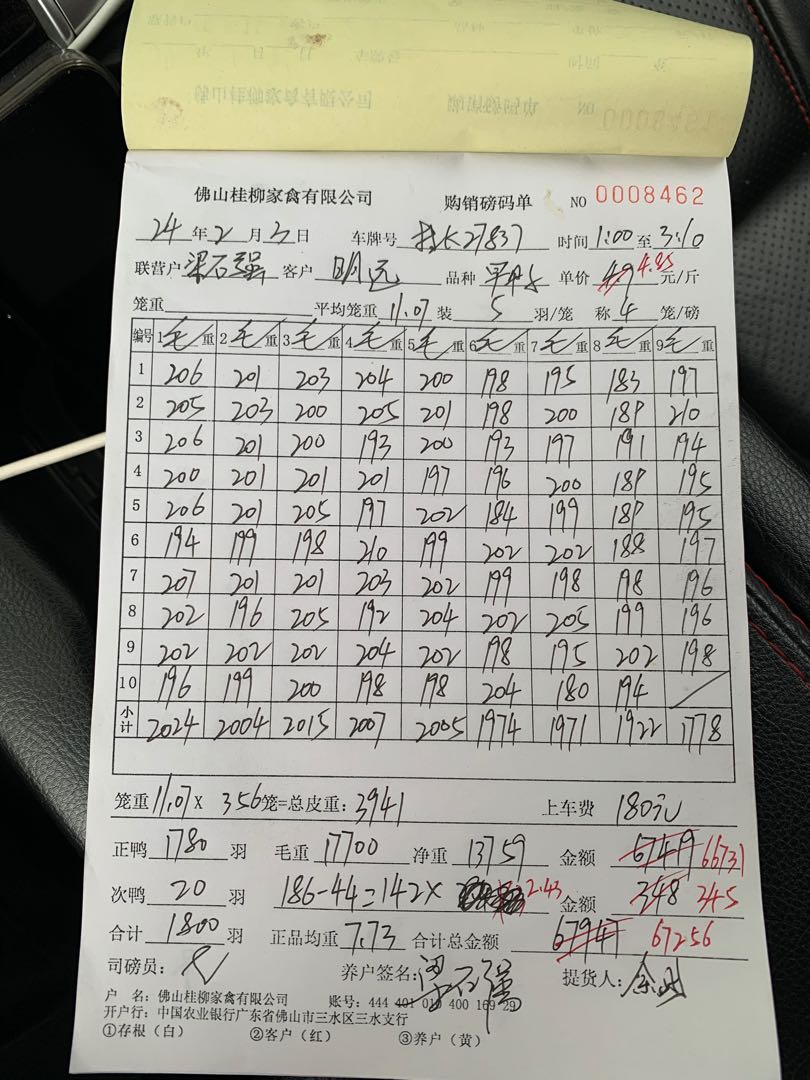 佛山桂柳家禽有限公司 购销磅码单 NO 0008462
24年2月3日 车牌号 27837 时间1:00至3:10
联营户 梁石强 客户 明远 品种 单价 4.9 4.85 元/斤
笼重 平均笼重11.07装5羽/笼 称4笼/磅
编号 1毛重 2毛重 3毛重 4毛重 5毛重 6毛重 7毛重 8毛重 9毛重
1 206 201 203 204 200 198 195 183 197
2 205 203 200 205 201 198 200 189 210
3 206 201 200 193 200 193 197 191 194
4 200 201 201 201 197 196 200 189 195
5 206 201 205 197 202 184 199 189 195
6 194 199 198 210 199 202 202 188 197
7 207 201 201 203 202 199 198 198 196
8 202 196 205 192 204 202 205 199 196
9 202 202 202 204 202 198 195 202 198
10 196 199 200 198 198 204 180 194 /
小计 2024 2004 2015 2007 2005 1974 1971 1922 1778
笼重11.07×356笼=总皮重：3941 上车费 180元
正鸭1780羽 毛重17700 净重13759 金额 6749 66731
次鸭20羽 186-44=142× 2.43 金额 348 345
合计1800羽 正品均重7.73 合计总金额 67947 67256
司磅员： 养户签名：梁石强 提货人：
户 名：佛山桂柳家禽有限公司 账号：444 401 010 400 169 29
开户行：中国农业银行广东省佛山市三水区三水支行
①存根（白） ②客户（红） ③养户（黄）